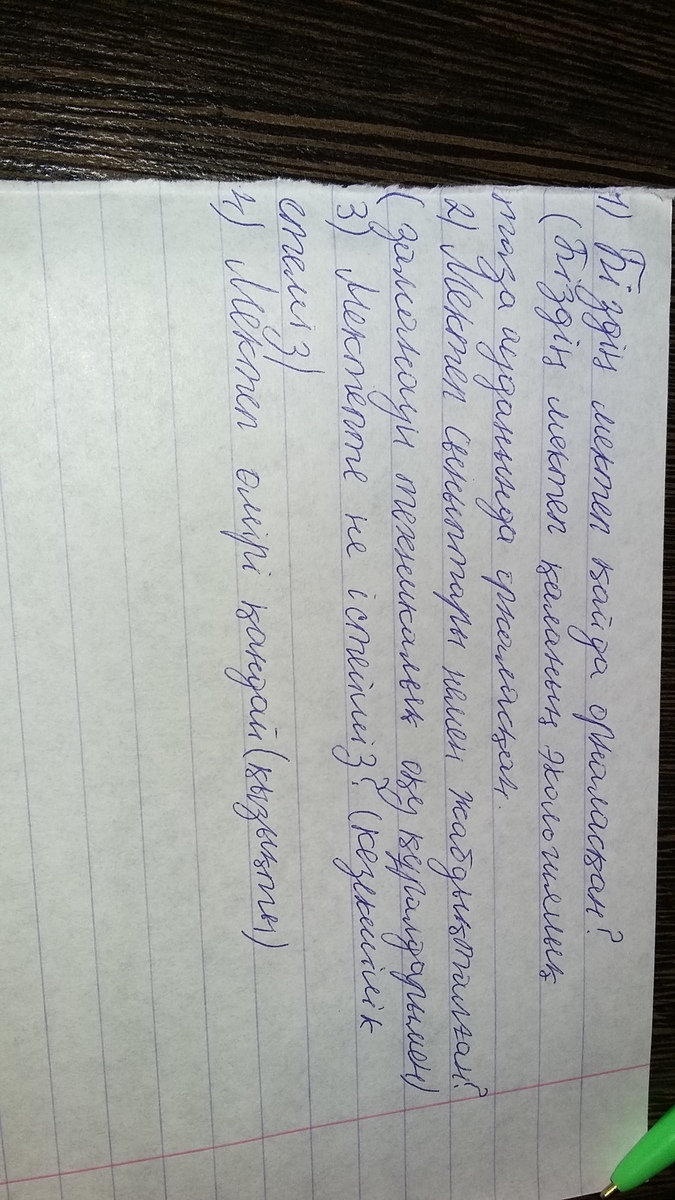 1) Біздің мектеп қайда орналасқан?
(Біздің мектеп қаланың экологиялық
таза ауданында орналасқан.
2) Мектеп сыныптары немен жабдықталған?
(заманауи техникалық оқу құралдарымен)
3) Мектепте не істейміз? (кезекшілік
етеміз)
4) Мектеп өмірі қандай (қызықты)